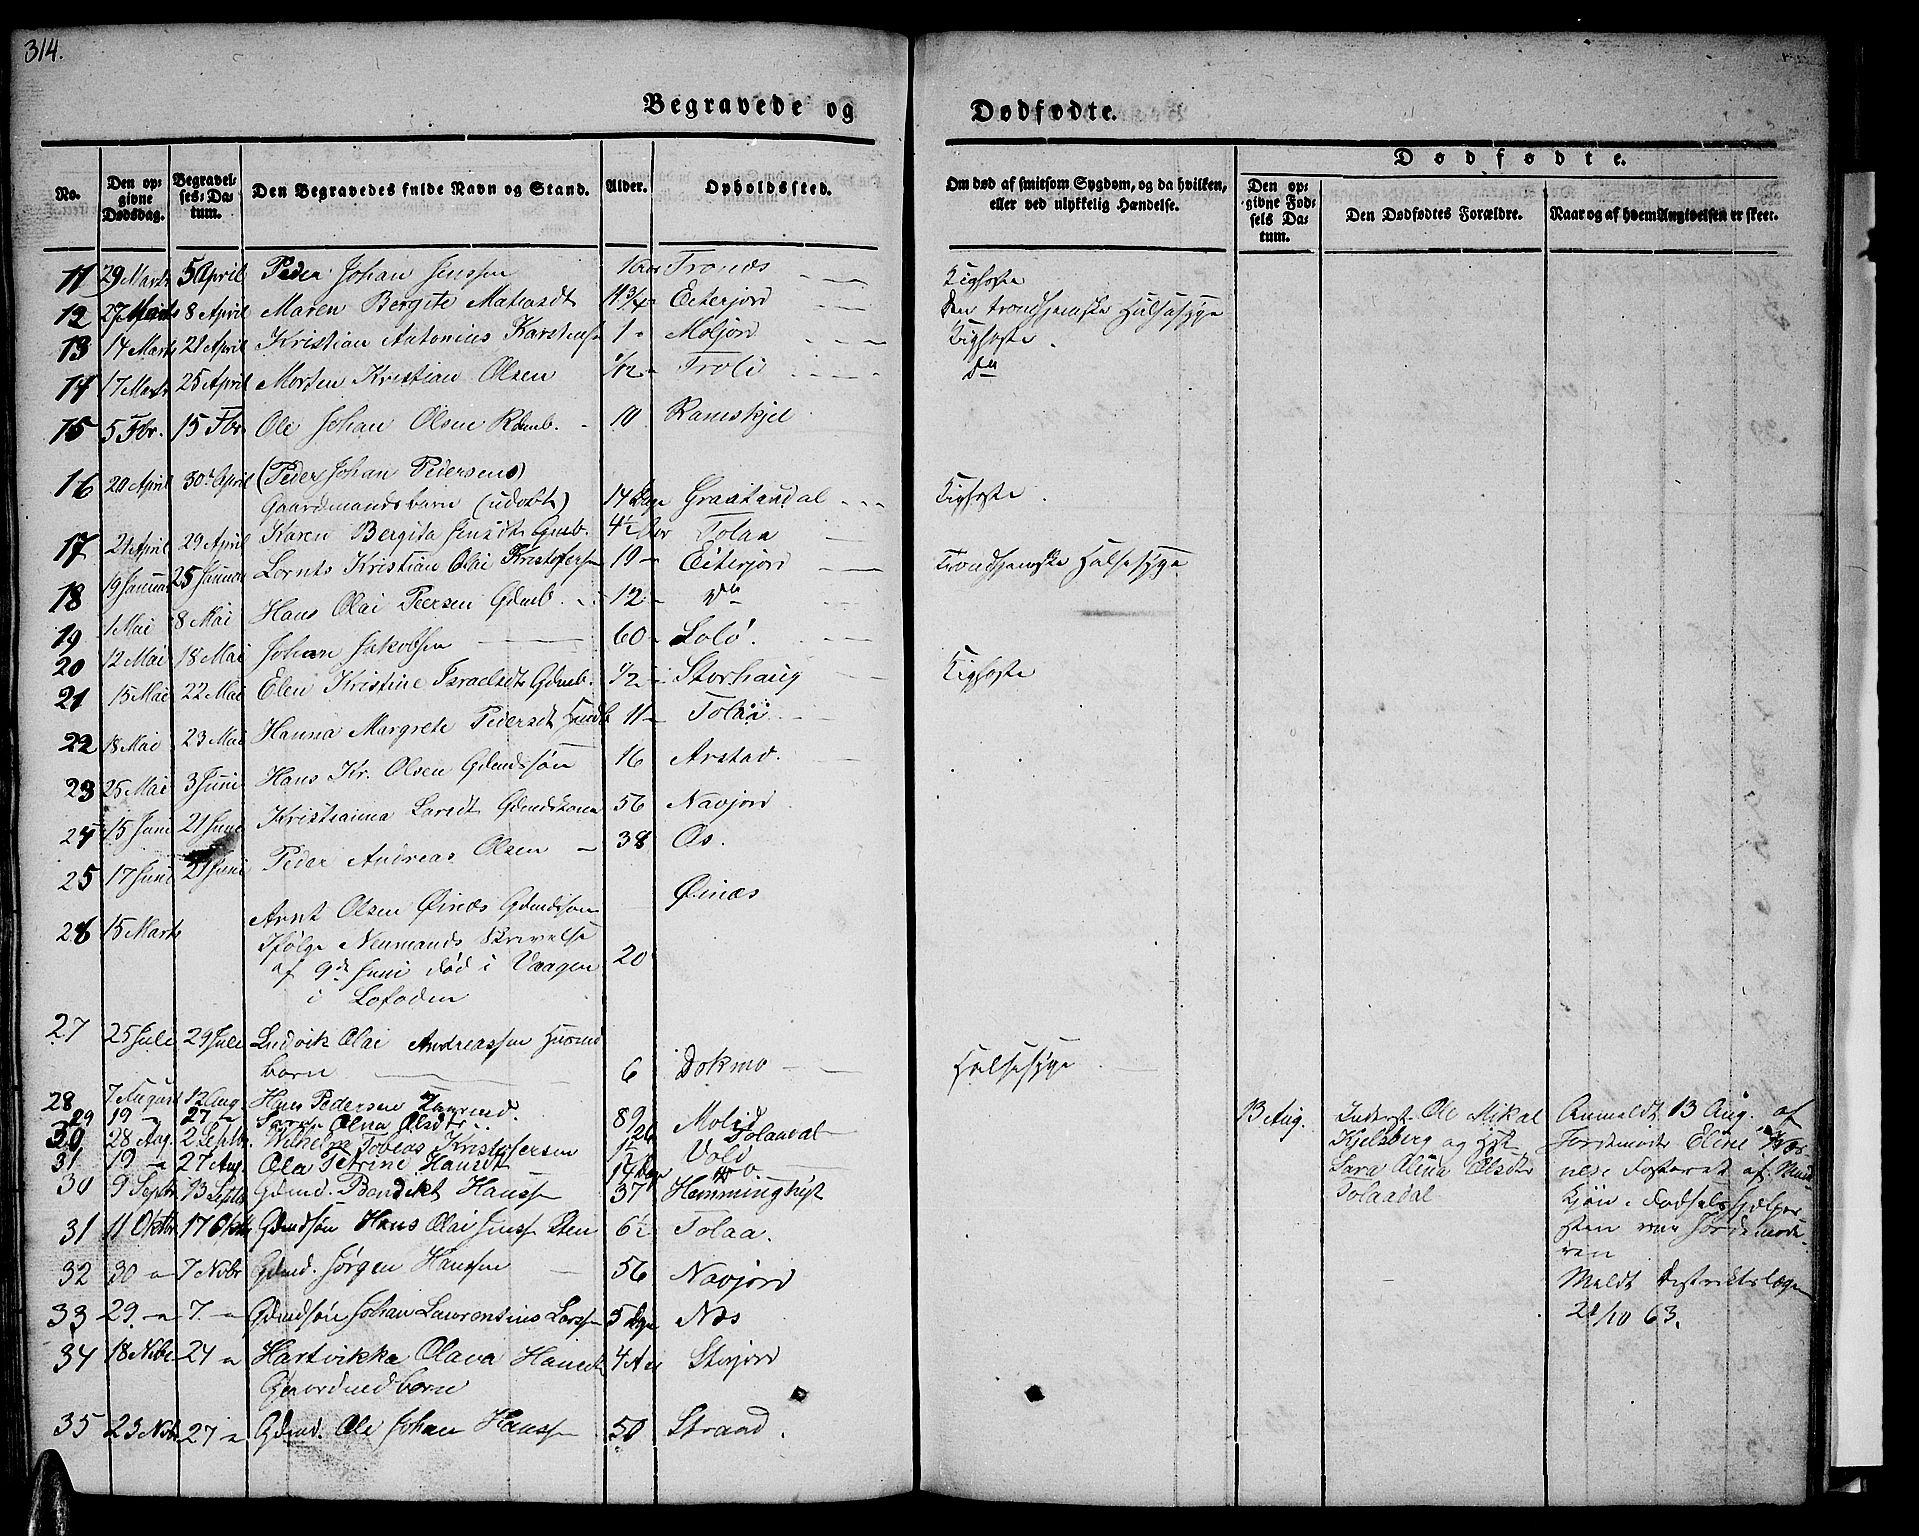 314.
Begravede og Dødfødte.
No.
Den opgivne Dødsdag.
Begravelses-Datum.
Den Begravedes fulde Navn og Stand.
Alder.
Opholdssted.
Om død af smitsom Sygdom, og da hvilken, eller ved ulykkelig Hændelse.
Dødfødte.
Den opgivne Fødsels Datum.
Den Dødfødtes Forældre.
Naar og af hvem Angivelsen er skeet.
11 29 Marts 5 April Peder Johan Jenssen Tronds Kighoste
12 27 Marts 8 April Maren Bergite Matiasdt 11 3/4 Eiterjord Den trondhjemske Halssyge
13 14 Marts 21 April Kristian Antonius Karstens 1 Moljord Kighoste
14 17 Marts 25 April Morten Kristian Olsen 1/12 Troli do
15 5 Fbr. 15 Fbr. Ole Johan Olsen 10 Rameskjel
16 20 April 30 April (Peder Johan Pedersens)
Gaardmandsbarn (udøbt) 14 Dage Graataadal Kighoste
17 21 April 29 April Karen Bergita Jensdt Gmb. 4½ Aar Tolaa
18 19 Januar 25 Januar Lornts Kristian Olai Kristofersen 19 Eiterjord Trondhjemske Halssyge
19 1 Mai 8 Mai Hans Olai Peersen Gdmb. 12 do
20 12 Mai 18 Mai Johan Jakobsen 60 Solø.
21 15 Mai 22 Mai Elen Kristine Israelsdt Gdmb. 1/2 Storhaug Kighoste
22 18 Mai 23 Mai Hanna Margrete Pedersdt 11 Tolaa
23 25 Mai 3 Juni Hans Kr. Olsen Gdmdssøn 16 Arstad.
24 15 Juni 21 Juni Kristianna Larsdt Gdmdskone 56 Navjord
25 17 Juni 21 Juni Peder Andreas Olsen 38 Os.
26 15 Marts Arnt Olsen Øinæs Gdmdssøn Øinæs
Ifølge Neumands Skrivelse
af 9de Juni død i Vaagen 20
i Lofoden
27 25 Juli 29 Juli Ludvik Olai Andreassen Husmd
barn 6 Dokmo Halssyge
28 7 August 12 Aug. Hans Pedersen 8
29 19 27 Sara Olina Olsdtr. 26 Tolaadal
30 28 Aug. 2 Septb. Wilhelm Tobias Kristofersen
31 19 27 Aug. Ola Petrine Hansdt 14 Dage
30 9 Septbr 13 Septb Gdmd. Bendikt Hanssen 37 Hemminghyt
31 11 Oktbr 17 Okt Gdmdsøn Hans Olai Jenssen 6½ Tolaa.
32 30 7 Nobr Gdmd. Jørgen Hanssen 56 Navjord
33 29. 7. Gdmdsøn Johan Laurentius Larssen 5 Dge Næs
34 18 Nobr 24 Hartvikka Olava Hansdt 4 Aar Storjord
Gaardmdbarn
35 23 Nobr 27 Gdmd. Ole Johan Hanssen 50 Straad.
13 Aug. Inderst Ole Mikal
Kjelsberg og Hst
Sara Olina Olsdtr
Tolaadal
Anmeldt 13 Aug. af
Jordemoder Eline
Fosteret af Mand
Kjøn. Fødselshjælper
sken var Jordemode
ren
Meldt Distriktslægen
21/10 63.